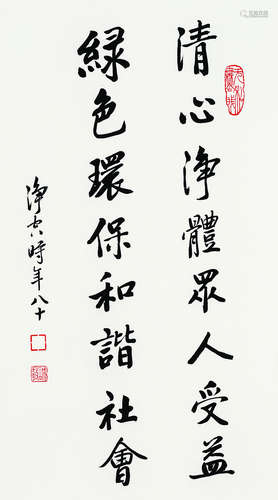 清心淨體眾人受益
綠色環保和諧社會
淨空時年八十